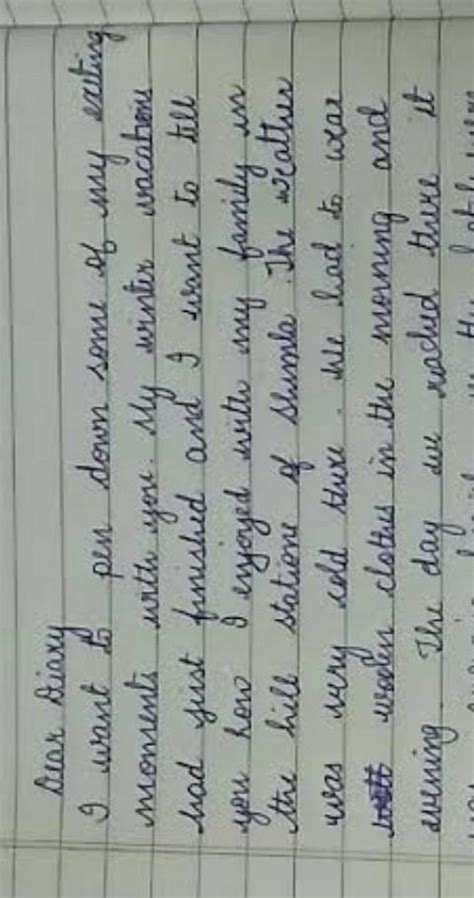 Dear Diary
I want to pen down some of my exciting
moments with you. My winter vacations
had just finished and I want to tell
you how I enjoyed with my family in
the hill statione of Shimla. The weather
was very cold there. We had to wear
woolen clothes in the morning and
evening. The day we reached there it